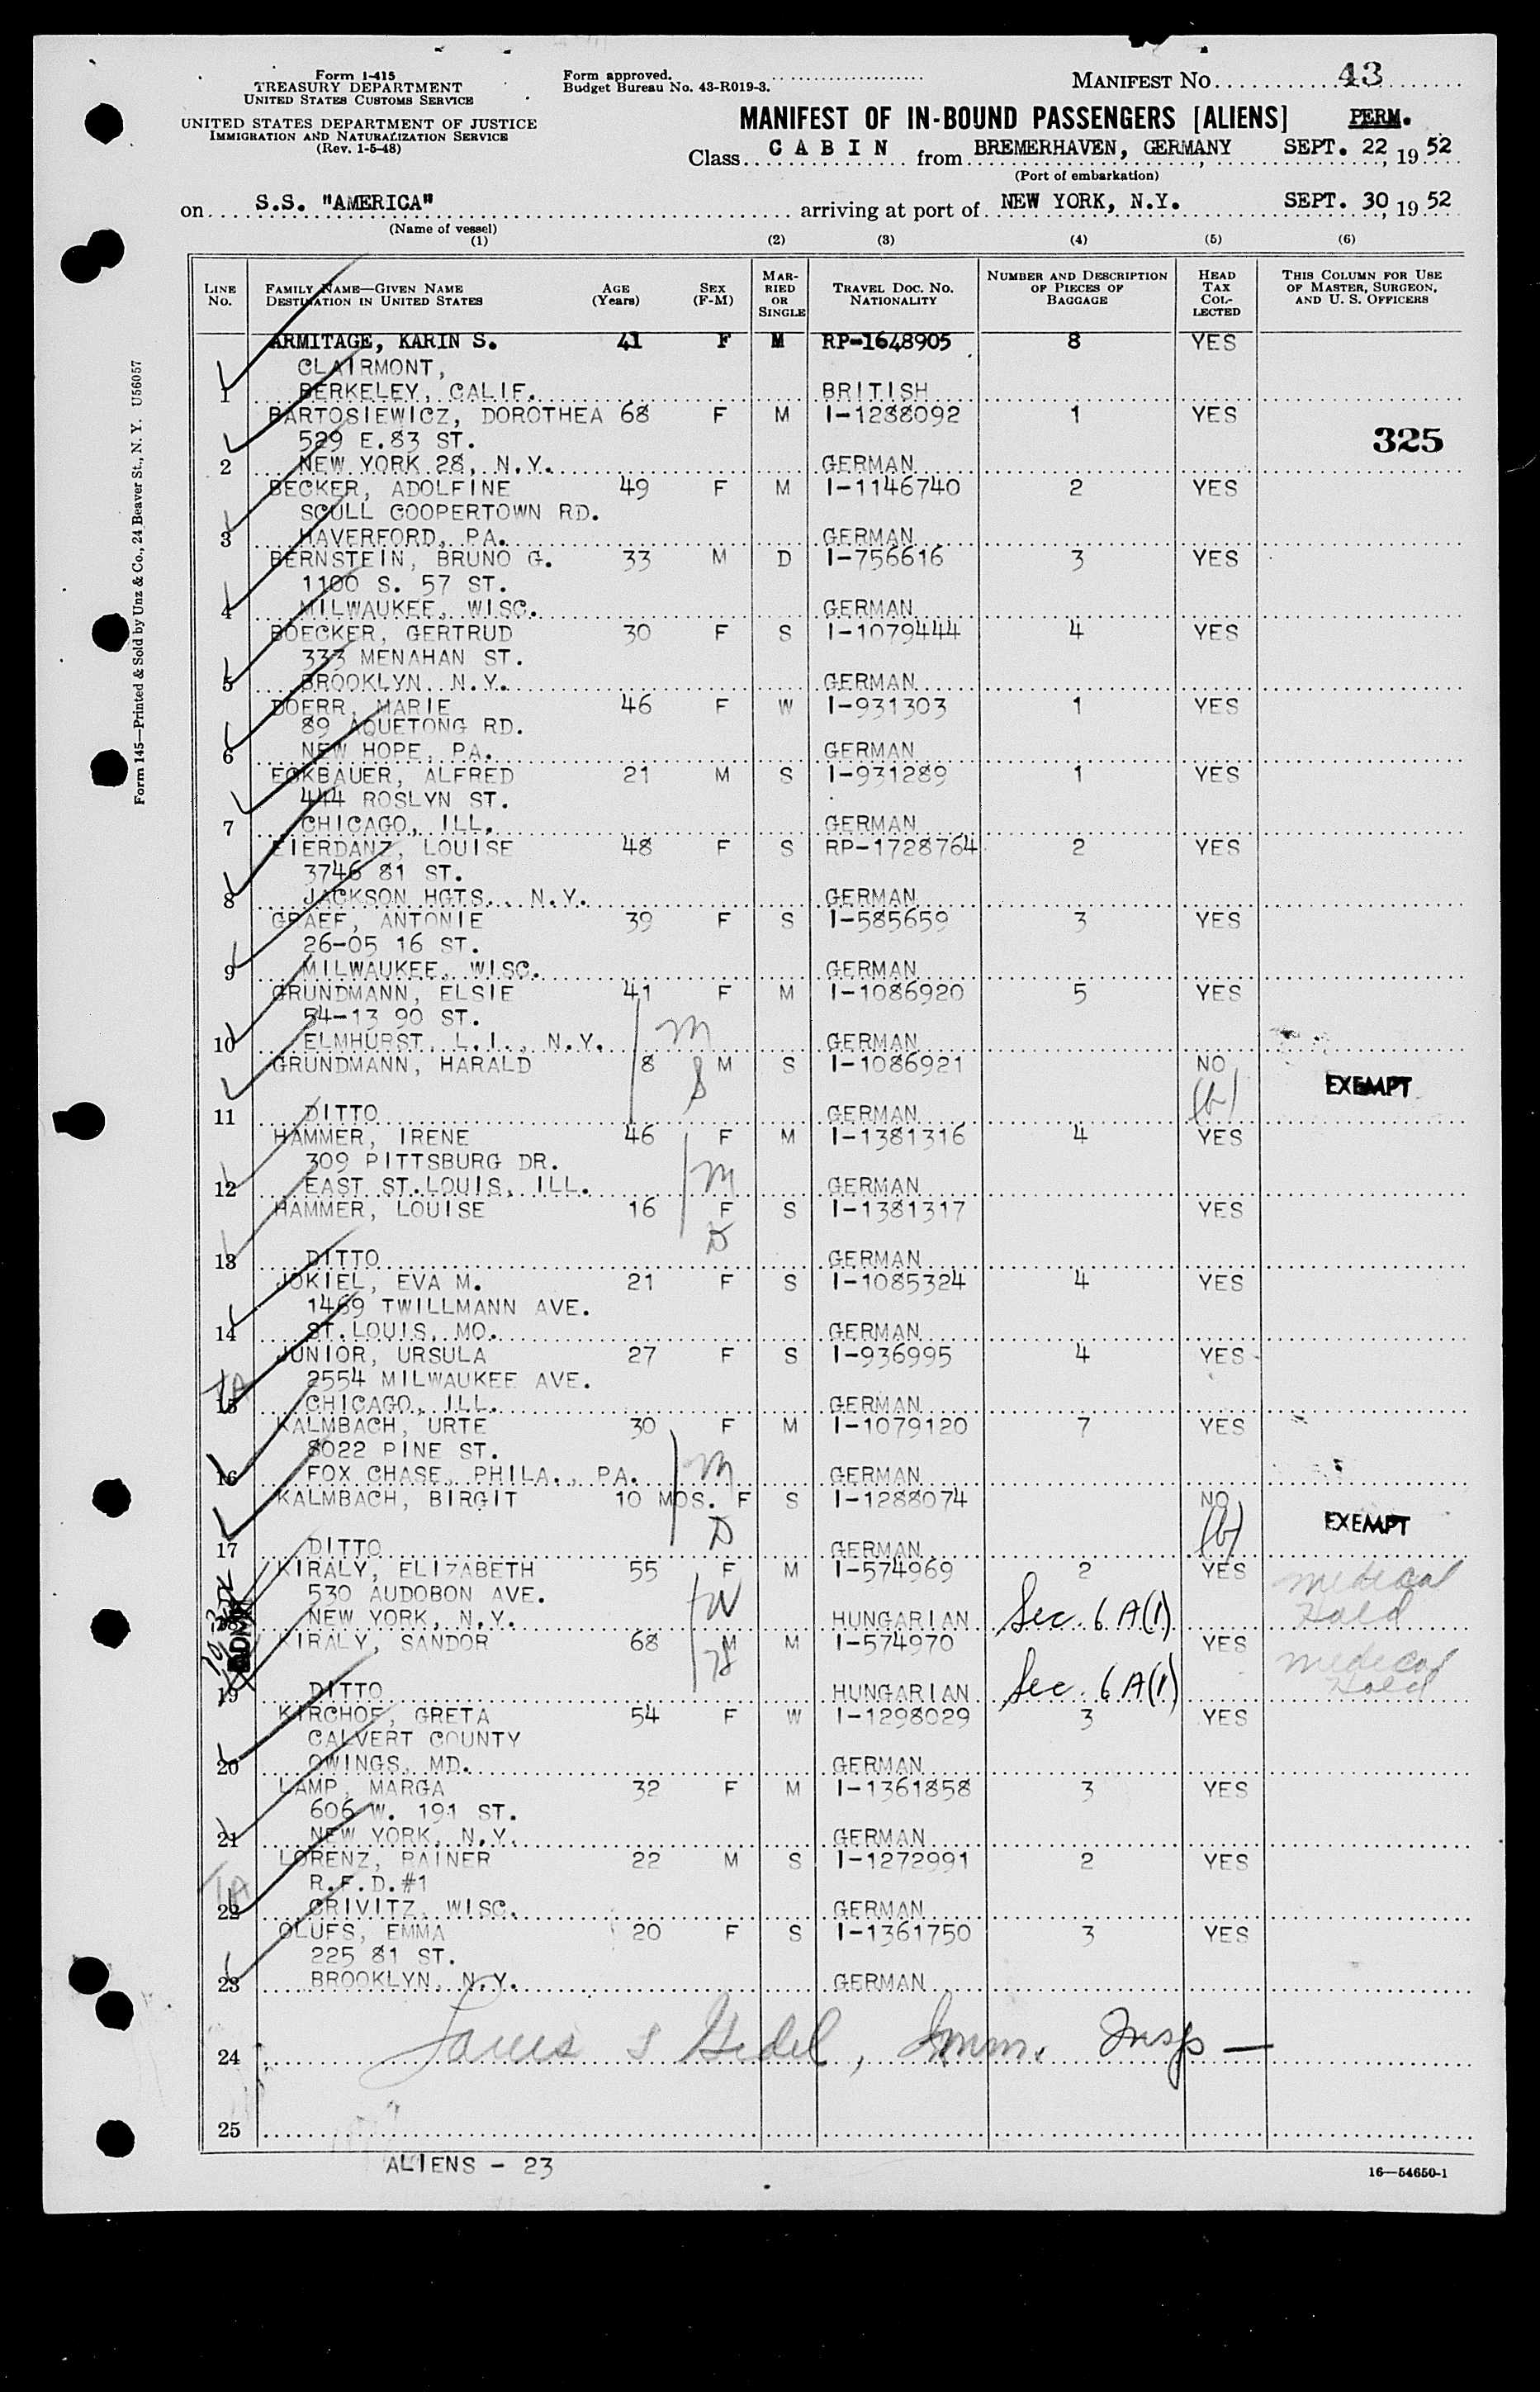 Form I-415
TREASURY DEPARTMENT
UNITED STATES CUSTOMS SERVICE
UNITED STATES DEPARTMENT OF JUSTICE
IMMIGRATION AND NATURALIZATION SERVICE
(Rev. 1-5-48)
Form approved.
Budget Bureau No. 43-R019-3.
MANIFEST No. 43
MANIFEST OF IN-BOUND PASSENGERS [ALIENS] PERM.
Class CABIN from BREMERHAVEN, GERMANY, SEPT. 22, 1952
(Port of embarkation)
on S.S. "AMERICA" arriving at port of NEW YORK, N.Y. SEPT. 30, 1952
(Name of vessel)
(1) (2) (3) (4) (5) (6)
LINE No. FAMILY NAME—GIVEN NAME DESTINATION IN UNITED STATES AGE (Years) SEX (F-M) MARRIED OR SINGLE TRAVEL DOC. NO. NATIONALITY NUMBER AND DESCRIPTION OF PIECES OF BAGGAGE HEAD TAX COLLECTED THIS COLUMN FOR USE OF MASTER, SURGEON, AND U. S. OFFICERS
ARMITAGE, KARIN S. 41 F M RP-1648905 8 YES
CLAIRMONT,
1 BERKELEY, CALIF. BRITISH
BARTOSIEWICZ, DOROTHEA 68 F M I-1288092 1 YES
529 E.83 ST. 325
2 NEW YORK 28, N.Y. GERMAN
BECKER, ADOLFINE 49 F M I-1146740 2 YES
SCULL COOPERTOWN RD.
3 HAVERFORD, PA. GERMAN
BERNSTEIN, BRUNO G. 33 M D I-756616 3 YES
1100 S. 57 ST.
4 MILWAUKEE, WISC. GERMAN
BOECKER, GERTRUD 30 F S I-1079444 4 YES
333 MENAHAN ST.
5 BROOKLYN, N.Y. GERMAN
DOERR, MARIE 46 F W I-931303 1 YES
89 AQUETONG RD.
6 NEW HOPE, PA. GERMAN
ECKBAUER, ALFRED 21 M S I-931289 1 YES
444 ROSLYN ST.
7 CHICAGO, ILL. GERMAN
EIERDANZ, LOUISE 48 F S RP-1728764 2 YES
3746 81 ST.
8 JACKSON HGTS., N.Y. GERMAN
GRAEF, ANTONIE 39 F S I-585659 3 YES
26-05 16 ST.
9 MILWAUKEE, WISC. GERMAN
GRUNDMANN, ELSIE 41 F M I-1086920 5 YES
54-13 90 ST. M
10 ELMHURST, L.I., N.Y. GERMAN
GRUNDMANN, HARALD 8 M S I-1086921 NO
S (b) EXEMPT
11 DITTO GERMAN
HAMMER, IRENE 46 F M I-1381316 4 YES
309 PITTSBURG DR. M
12 EAST ST.LOUIS, ILL. GERMAN
HAMMER, LOUISE 16 F S I-1381317 YES
D
13 DITTO GERMAN
JOKIEL, EVA M. 21 F S I-1085324 4 YES
1469 TWILLMANN AVE.
14 ST.LOUIS, MO. GERMAN
JUNIOR, URSULA 27 F S I-936995 4 YES
TA 2554 MILWAUKEE AVE.
15 CHICAGO, ILL. GERMAN
KALMBACH, URTE 30 F M I-1079120 7 YES
8022 PINE ST. M
16 FOX CHASE, PHILA., PA. GERMAN
KALMBACH, BIRGIT 10 MOS. F S I-1288074 NO
D (b) EXEMPT
17 DITTO GERMAN
KIRALY, ELIZABETH 55 F M I-574969 2 YES medical Hold
530 AUDOBON AVE. W
18 NEW YORK, N.Y. HUNGARIAN Sec. 6 A(1)
KIRALY, SANDOR 68 M M I-574970 YES medical Hold
H
19 DITTO HUNGARIAN Sec. 6 A(1)
KIRCHOF, GRETA 54 F W I-1298029 3 YES
CALVERT COUNTY
20 OWINGS, MD. GERMAN
LAMP, MARGA 32 F M I-1361858 3 YES
606 W. 191 ST.
21 NEW YORK, N.Y. GERMAN
LORENZ, RAINER 22 M S I-1272991 2 YES
TA R.F.D.#1
22 CRIVITZ, WISC. GERMAN
OLUFS, EMMA 20 F S I-1361750 3 YES
225 81 ST.
23 BROOKLYN, N.Y. GERMAN
24 Imm. Insp —
25
ALIENS - 23
16—54650-1
Form 145—Printed & Sold by Unz & Co., 24 Beaver St., N. Y. U56057